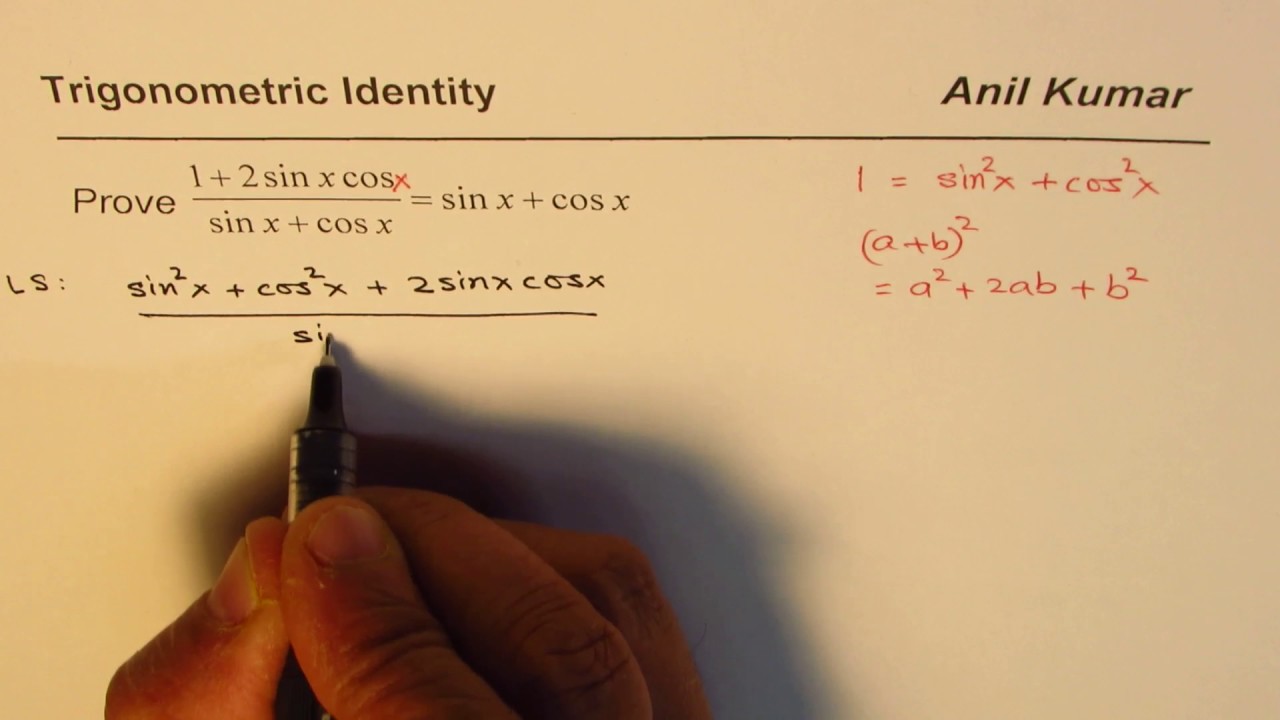 Trigonometric Identity Anil Kumar
Prove (1 + 2 sin x cos x)/(sin x + cos x) = sin x + cos x
1 = sin²x + cos²x
(a+b)²
= a² + 2ab + b²
LS: sin²x + cos²x + 2sinx cosx
si